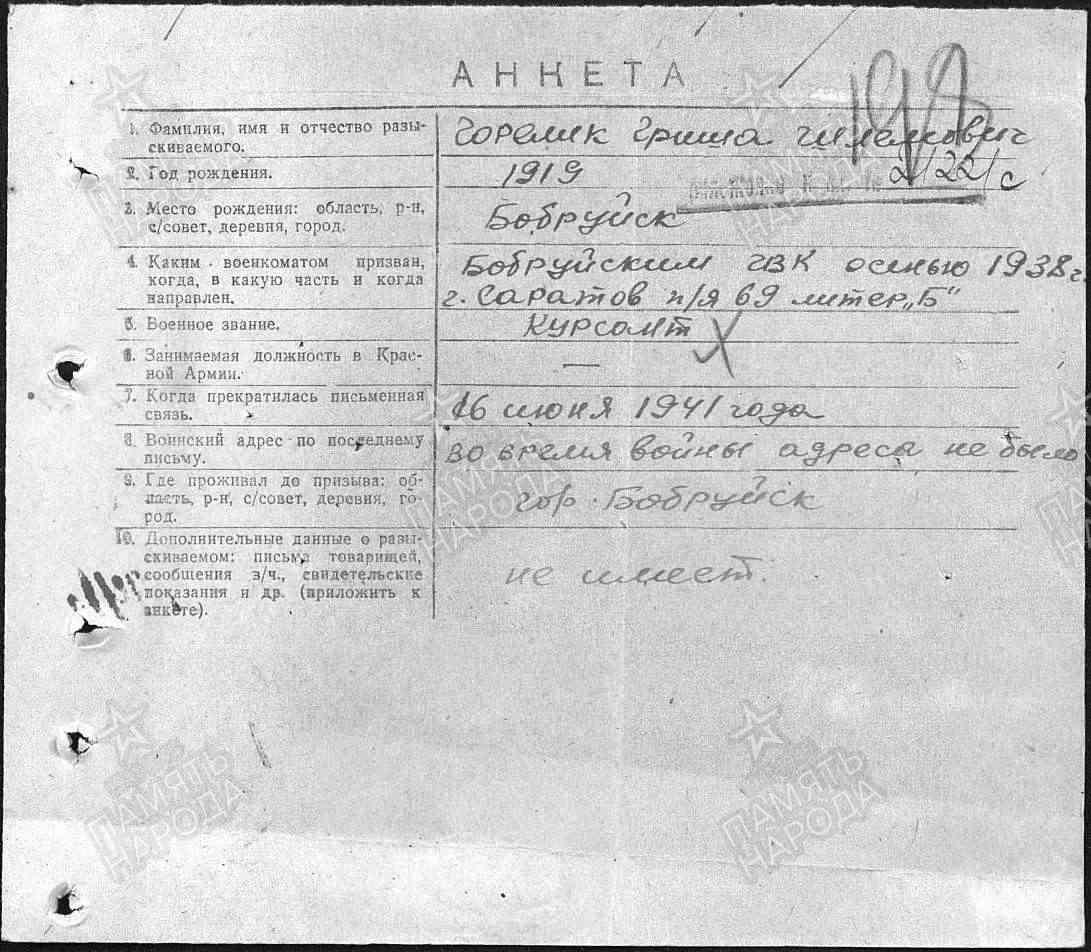 АНКЕТА
1. Фамилия, имя и отчество разы-
скиваемого.
Горелик Гриша
2. Год рождения.
1919
2/221с
3. Место рождения: область, р-н,
с/совет, деревня, город.
Бобруйск
4. Каким военкоматом призван,
когда, в какую часть и когда
направлен.
Бобруйским ГВК осенью 1938 г
г. Саратов п/я 69 литер „Б"
5. Военное звание.
Курсант
6. Занимаемая должность в Крас-
ной Армии.
—
7. Когда прекратилась письменная
связь.
16 июня 1941 года
8. Воинский адрес по последнему
письму.
во время войны адреса не было
9. Где проживал до призыва: об-
ласть, р-н, с/совет, деревня, го-
род.
гор. Бобруйск
10. Дополнительные данные о разы-
скиваемом: письма товарищей,
сообщения з/ч., свидетельские
показания и др. (приложить к
анкете).
не имеет.
ПАМЯТЬ
НАРОДА
ПАМЯТЬ
НАРОДА
ПАМЯТЬ
НАРОДА